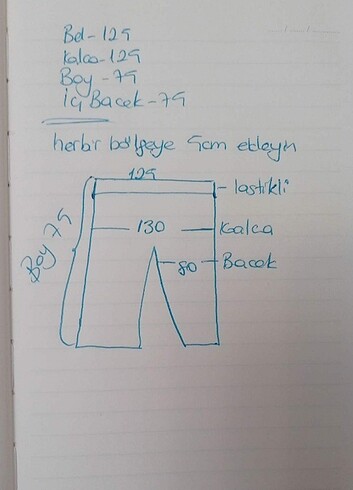 Bel-125
Kalca-125
Boy-75
İç Bacek-75
herbir bölgeye 5cm ekleyin
125
lastikli
130
Kalca
80
Bacek
Boy 75